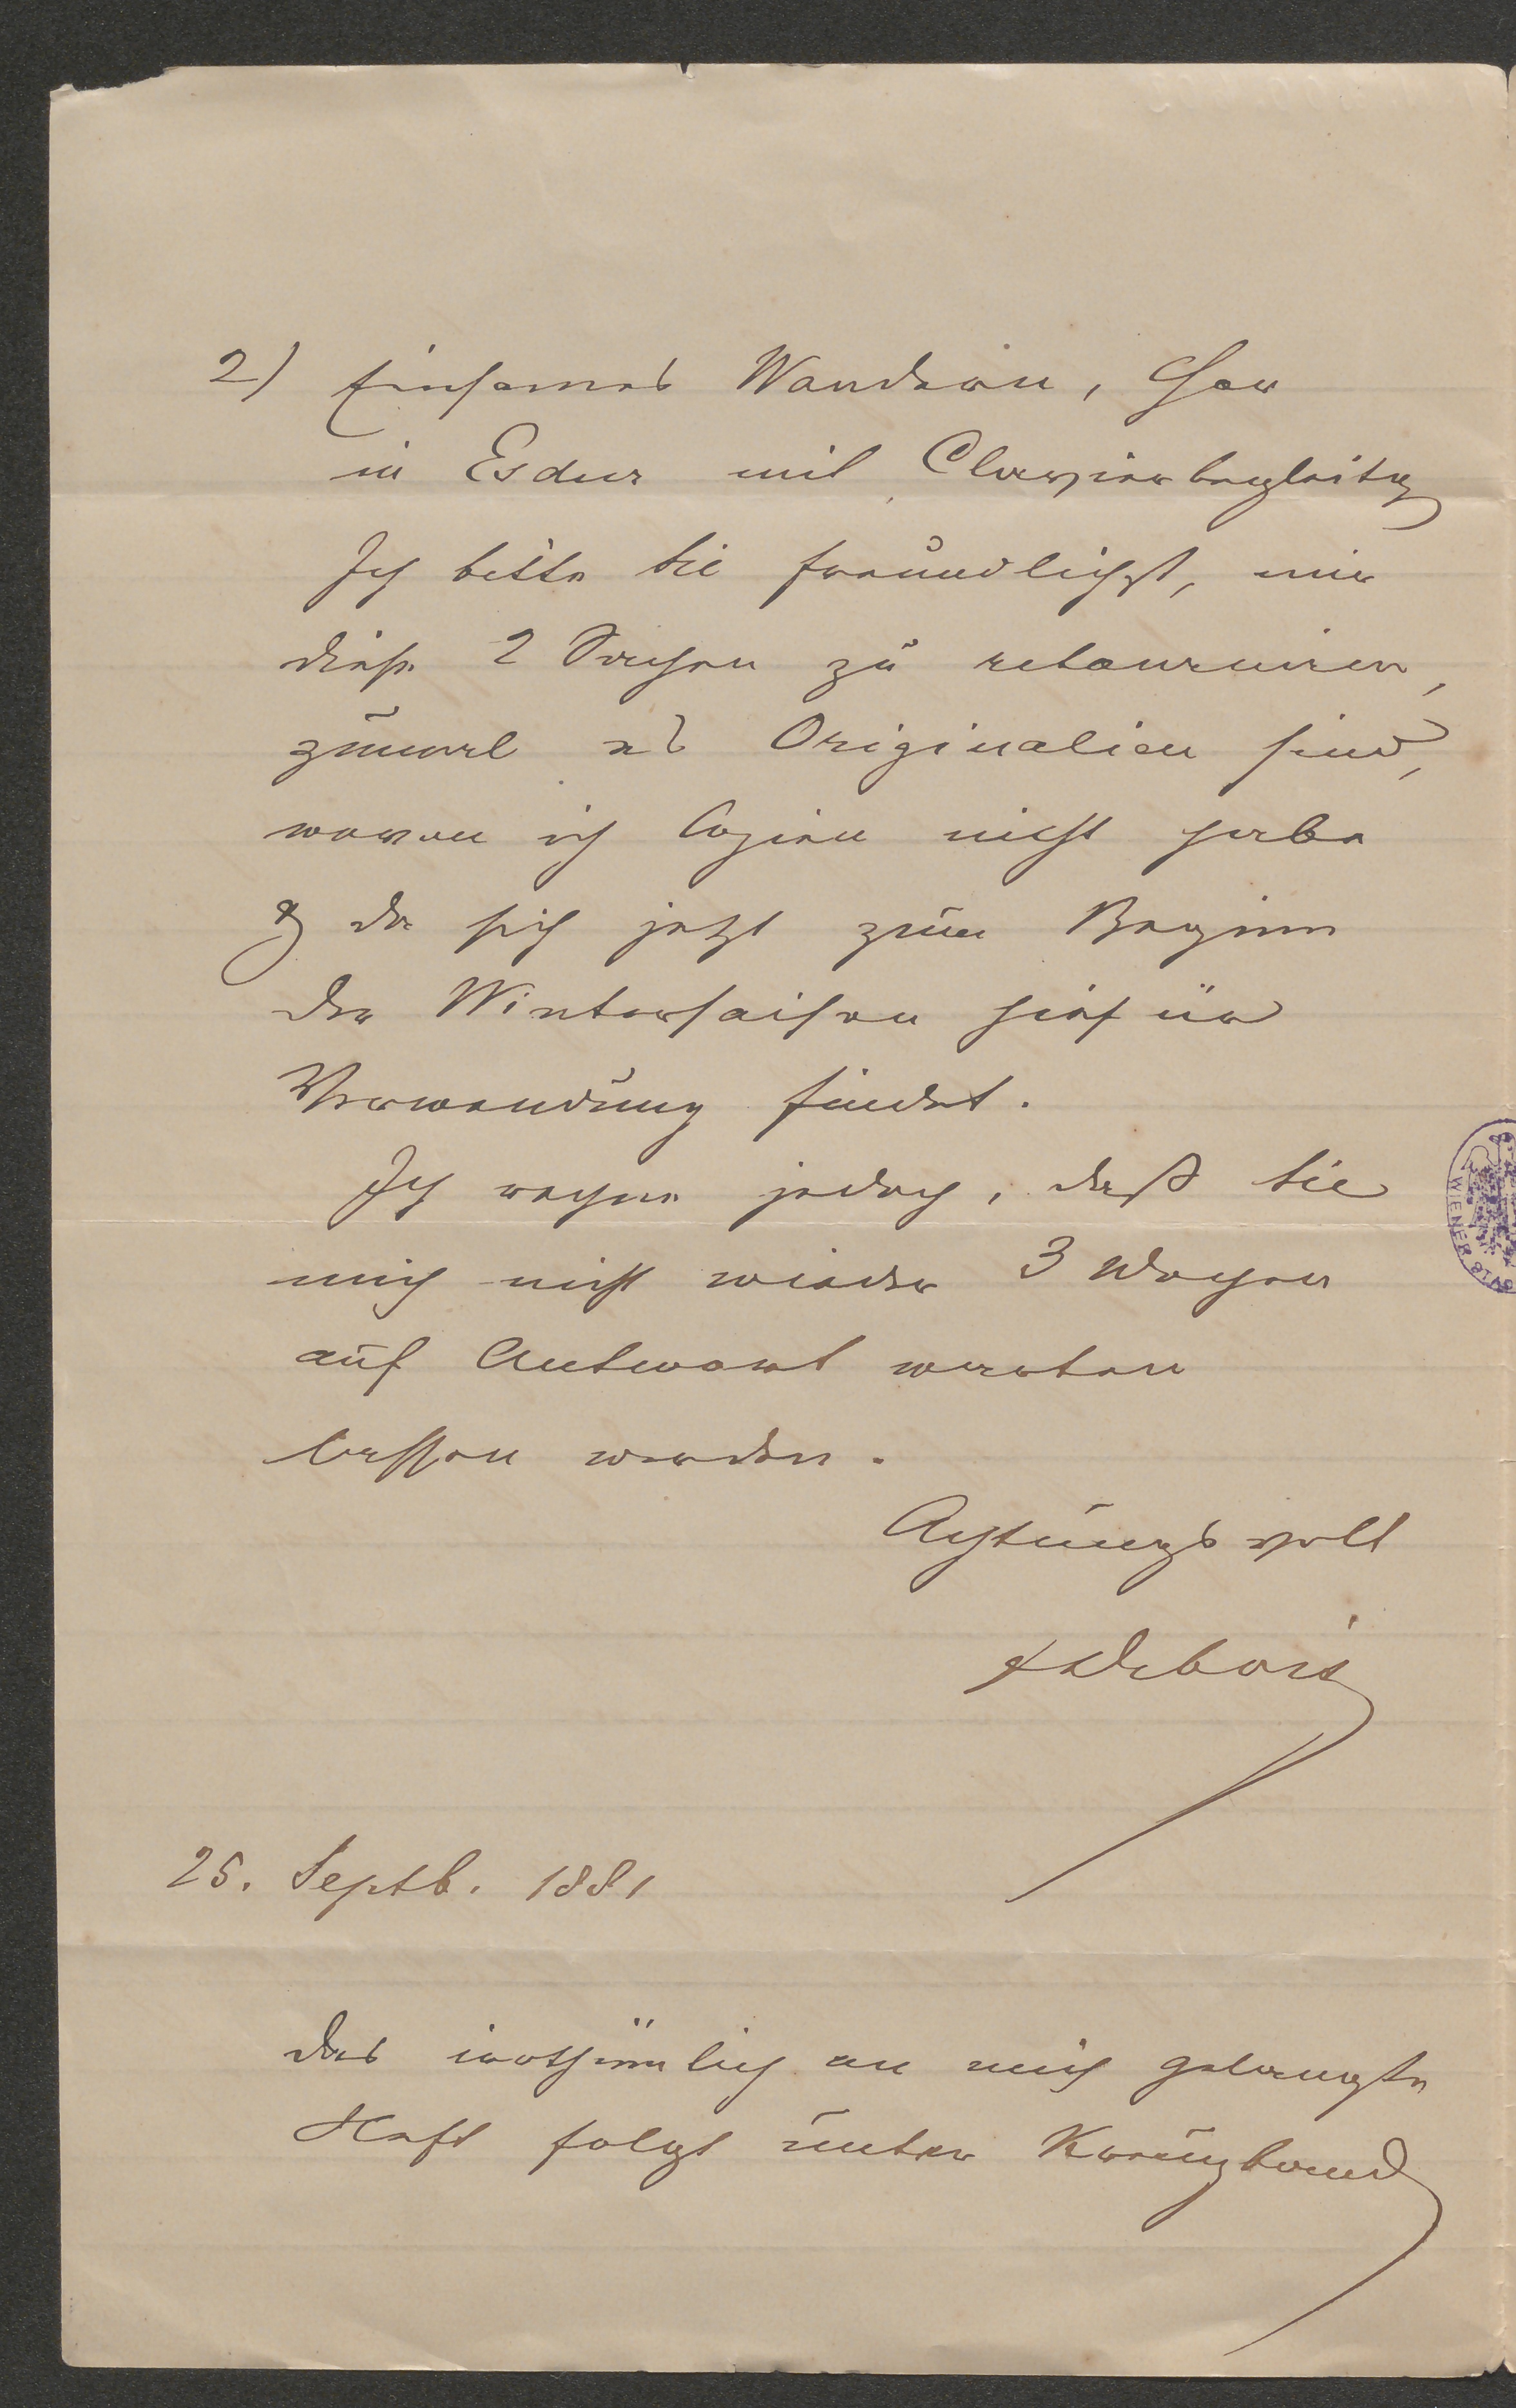 2) Einsames Wandern, Chor
in Esdur mit Clavierbegleitg
Ich bitte Sie freundlichst, mir
diese 2 Sachen zu retourniren,
zumal es Originalien sind,
wovon ich Copien nicht habe
& da sich jetzt zum Beginn
der Wintersaison hiefür
Verwendung findet.
Ich rechne jedoch, daß Sie
mich nicht wieder 3 Wochen
auf Antwort warten
lassen werden.
Achtungsvoll
Debois
25. Septb. 1881
Das irrthümlich an mich gelangte
Heft folgt unter Kreuzband
WIENER STAD